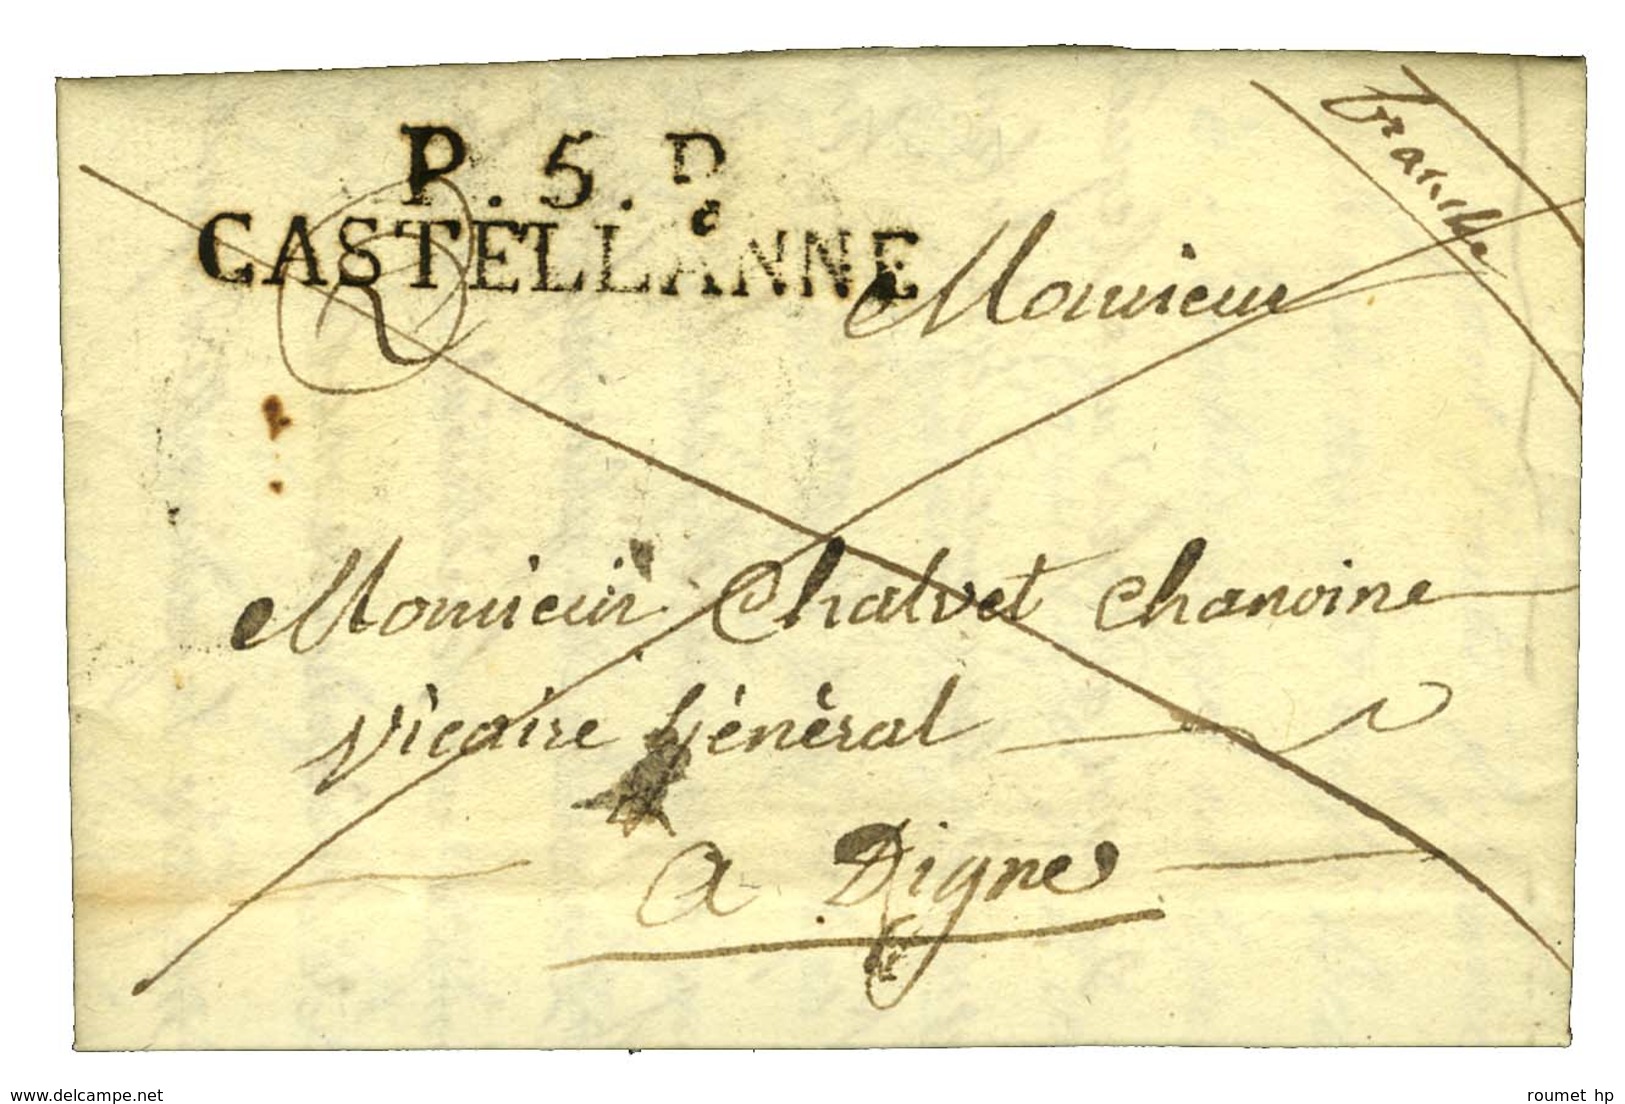 P. 5. P.
CASTELLANNE
franche
Monsieur
Monsieur Chalvet chanoine
Vicaire Général
a Digne
www.delcampe.net
roumet hp